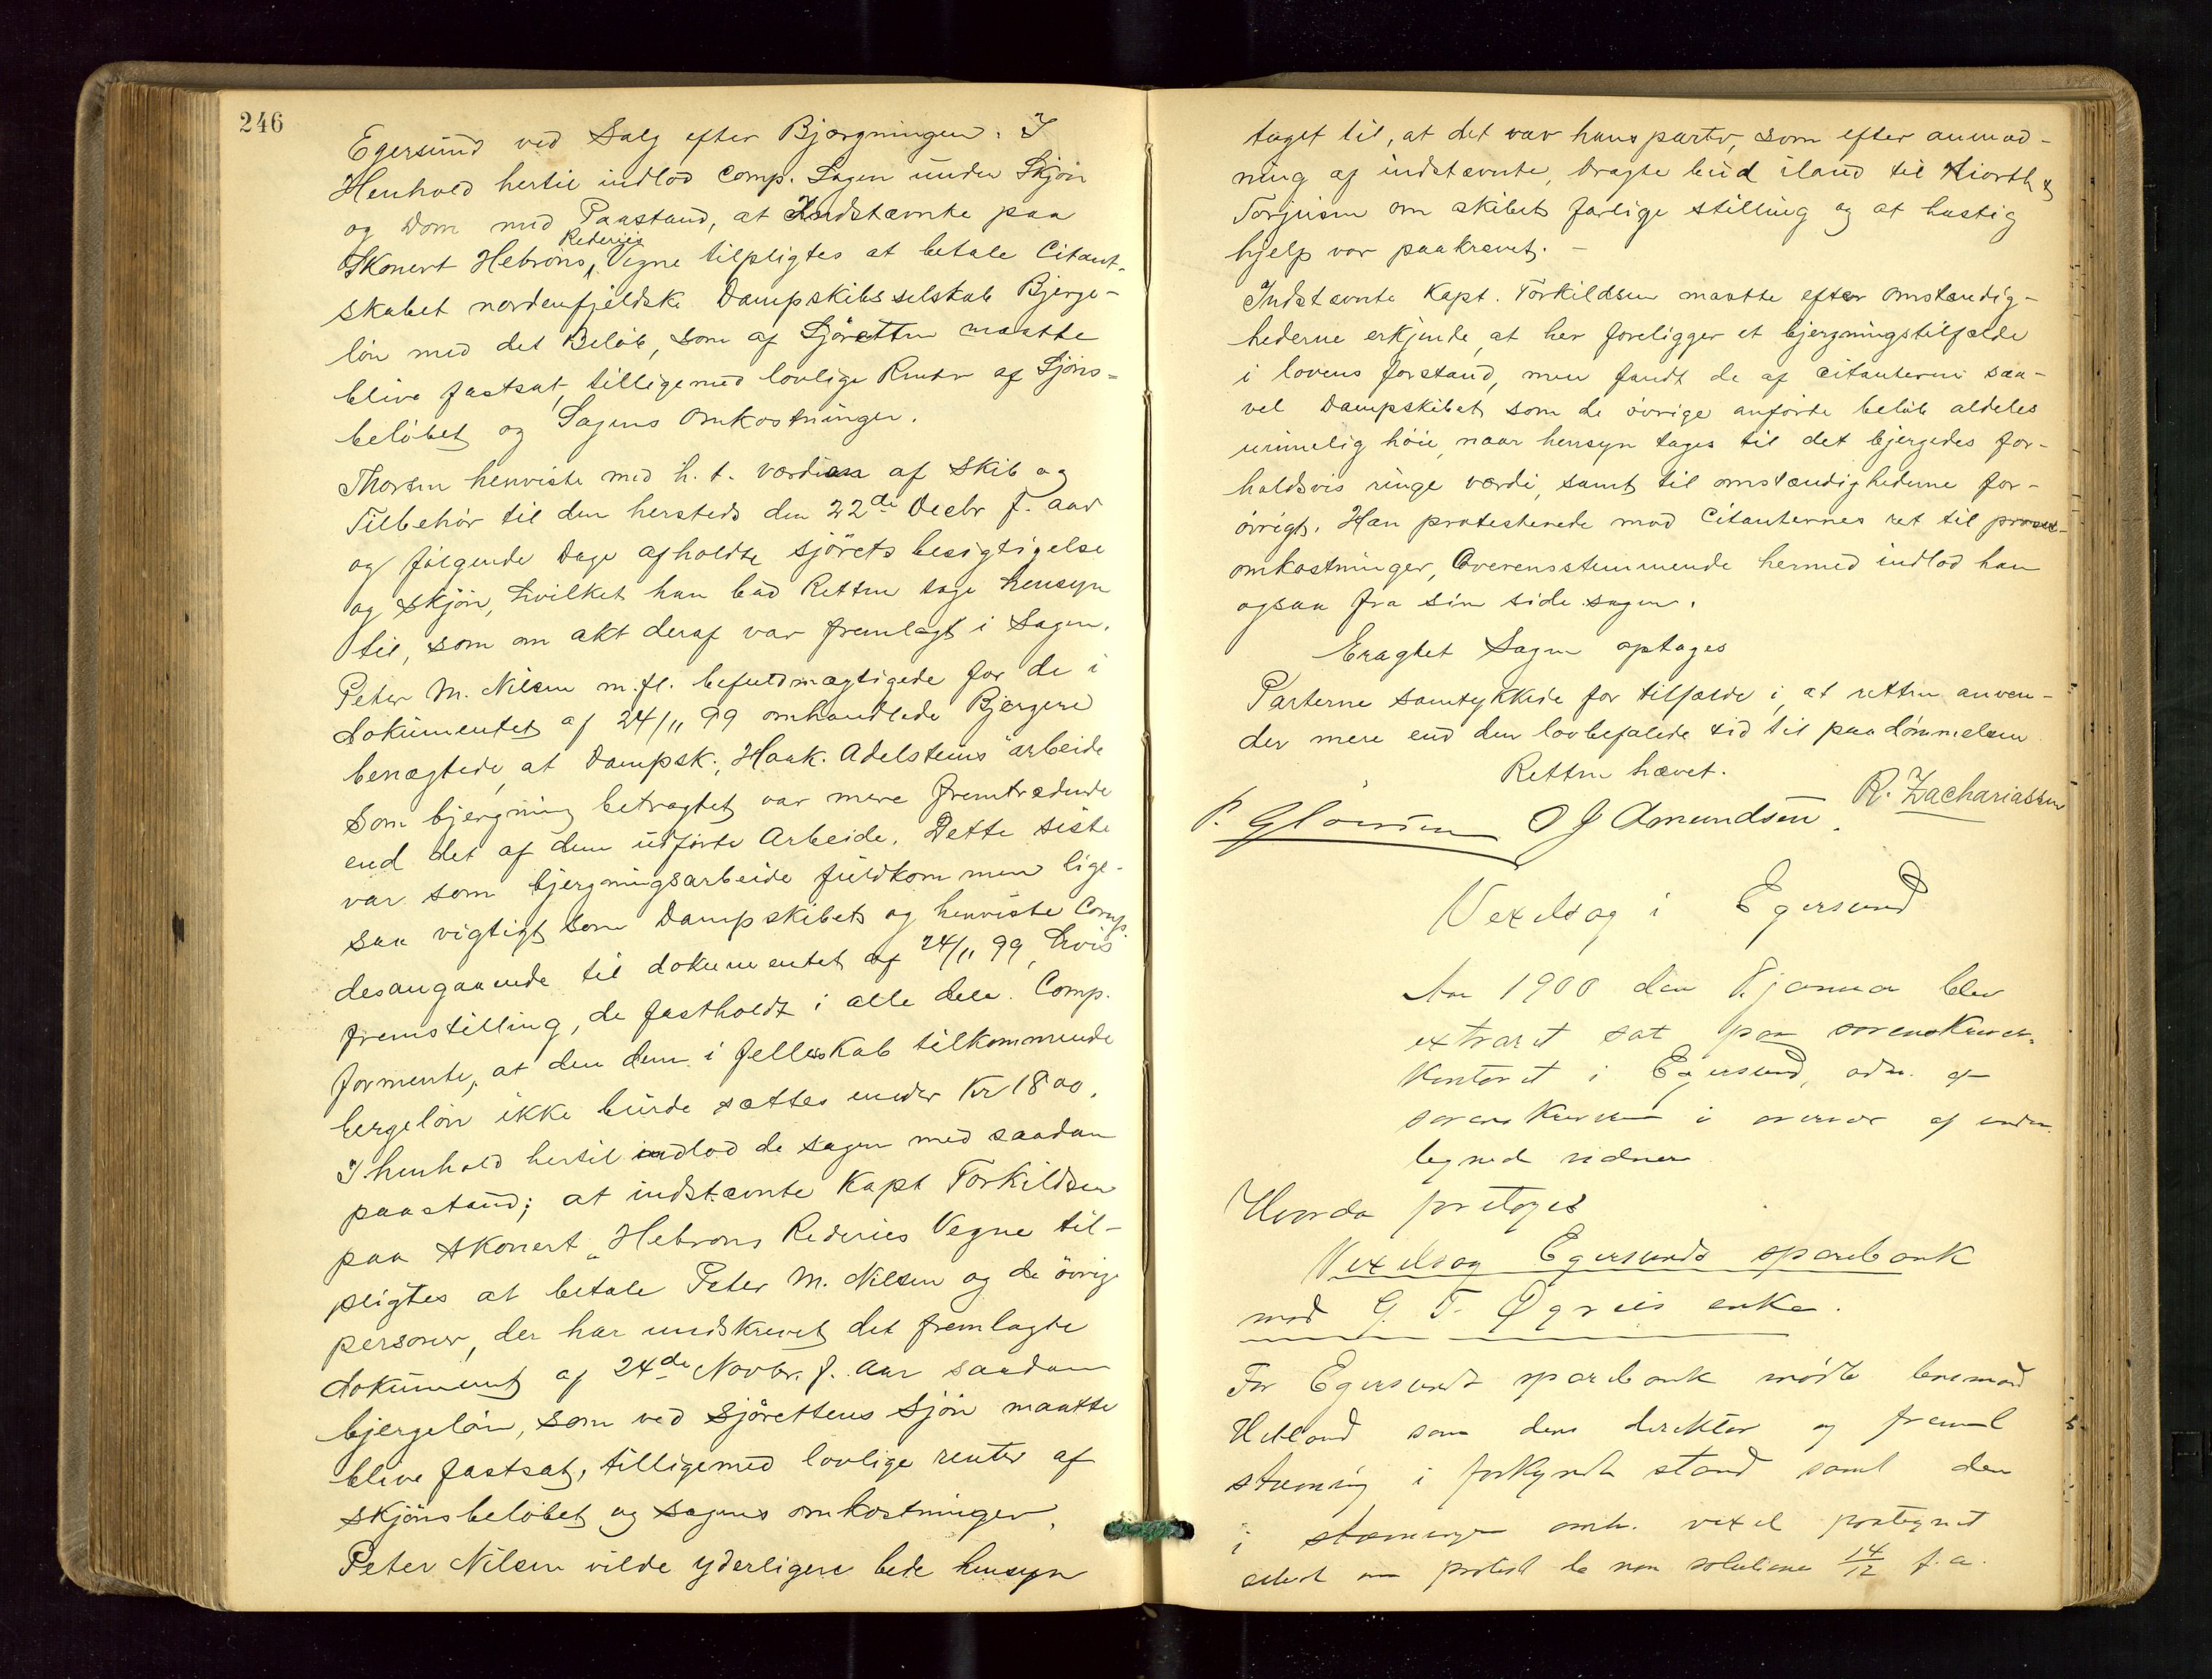 246
Egersund ved Salg efter Bjærgningen. I
Henhold hertil indlod Comp. Sagen under Skjön
og Dom med Paastand, at Indstævnte paa
Rederies
Skonert Hebrons, Vegne tilpligtes at betale Citant-
skabet nordenfjeldske Dampskibsselskab Bjerge-
lön med det Beløb, som af Sjöretten maatte
blive fastsat, tilligemed lovlige Renter af Sjöns-
belöbet og Sagens Omkostninger.
Thorsen henviste med h. t. værdien af Skib og
Tilbehör til den hersteds den 22de Decbr f. aar
og fölgende Dage afholdte sjörets besigtigelse
og Skjön, hvilket han bad Retten tage hensyn
til, som om akt deraf var fremlagt i Sagen.
Peter M. Nilsen m. fl. befuldmægtigede for de i
dokumentet af 24/11 99 omhandlede Bjergere
benægtede, at Dampsk. "Haak. Adelsteins" arbeide
som bjergning betragtet var mere fremtrædende
end det af dem udförte Arbeide. Dette siste
var som bjergningsarbeide fuldkommen lige-
saa vigtigt som Dampskibets og henviste Comp.
desangaaende til dokumentet af 24/11 99, hvis
fremstilling, de fastholdt i alle dele. Comp.
formente, at den dem i fellesskab tilkommende
bergelön ikke burde sættes under Kr 1800.
I henhold hertil indlod de sagen med saadan
paastand; at indstævnte Kapt Torkildsen
paa skonert "Hebrons Rederies Vegne til-
pligtes at betale Peter M. Nilsen og de övrige
personer, der har undskrevet det fremlagte
dokument af 24de Novbr. f. Aar saadan
bjergelön, som ved Sjörettens Sjön maatte
blive fastsat, tilligemed lovlige renter af
skjönsbelöbet og sagens omkostninger.
Peter Nilsen vilde yderligere bede hensyn
taget til, at det var hans parter, som efter anmod-
ning af indstævnte, bragte bud iland til Hiorth &
Torjusen om skibets farlige stilling og at hastig
hjelp var paakrævet. -
Indstævnte Kapt. Torkildsen maatte efter omstændig-
hederne erkjende, at her foreligger et bjergningstilfælde
i lovens forstand, men fandt de af citanterne saa-
vel Dampskibet som de övrige anførte beløb aldeles
urimelig höie, naar hensyn tages til det bjergedes for-
holdsvis ringe værdi, samt til omstændighederne for-
övrigt. Han protesterede mod Citanternes ret til proces-
omkostninger, Overensstemmende hermed indlod han
ogsaa fra sin side sagen.
Eragtet Sagen optages
Parterne samtykkede for tilfælde i, at retten anven-
der mere end den lovbefalede tid til paadömmelsen
Retten hævet.
R. Zachariassen
O J Amundsen.
Vexelsag i Egersund
Aar 1900 den 8 januar blev
extraret sat paa sorenskriver-
kontoret i Egersund, adm. af
sorenskriveren i overvær af under-
tegnede vidner
Hvorda foretoges
Vexelsag Egersunds sparebank
mod G. T. Ögreis enke.
For Egersunds sparebank mødte lensmand
Hetland som dens direktør og freml
stævning i forkyndt stand samt den
i stævningen omh. vexel paategnet
attest om protest de non solutione 14/12 f. a.